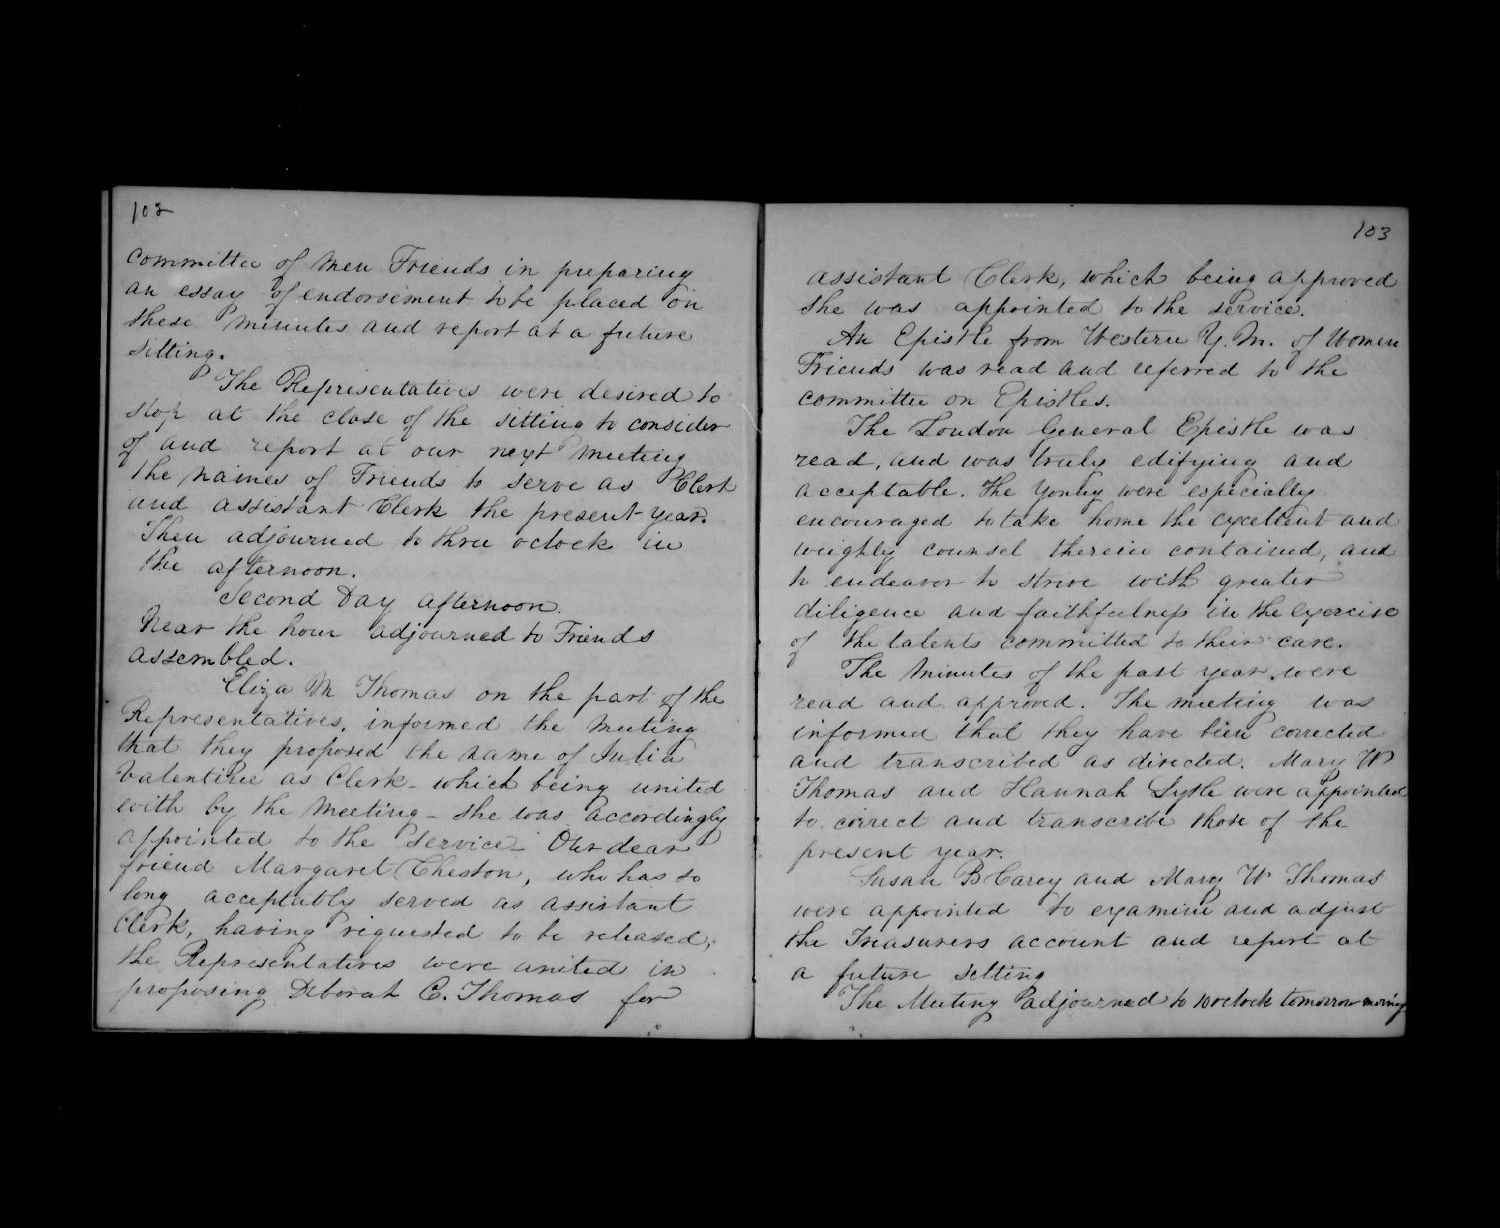 102
committee of Men Friends in preparing
an essay of endorsement to be placed on
these minutes and report at a future
sitting.
The Representatives were desired to
stop at the close of the sitting to consider
of and report at our next meeting
the names of Friends to serve as Clerk
and assistant Clerk the present year.
Then adjourned to three oclock in
the afternoon.
Second Day afternoon.
Near the hour adjourned to Friends
assembled.
Eliza M Thomas on the part of the
Representatives, informed the Meeting
that they proposed the name of Julia
Valentine as Clerk - which being united
with by the Meeting - she was accordingly
appointed to the service - Our dear
friend Margaret Cheston, who has so
long acceptably served as assistant
Clerk, having requested to be released,
the Representatives were united in
proposing Deborah C. Thomas for
103
assistant Clerk, which being approved
she was appointed to the service.
An Epistle from Western Y. M. of Women
Friends was read and referred to the
committee on Epistles.
The London General Epistle was
read, and was truly edifying and
acceptable. The Young were especially
encouraged to take home the excellent and
weighty counsel therein contained, and
to endeavor to strive with greater
diligence and faithfulness in the exercise
of the talents committed to their care.
The Minutes of the past year were
read and approved. The meeting was
informed that they have been corrected
and transcribed as directed. Mary W
Thomas and Hannah Lytle were appointed
to correct and transcribe those of the
present year.
Susan B Carey and Mary W Thomas
were appointed to examine and adjust
the Treasurers account and report at
a future sitting
The Meeting adjourned to 10 oclock tomorrow morning